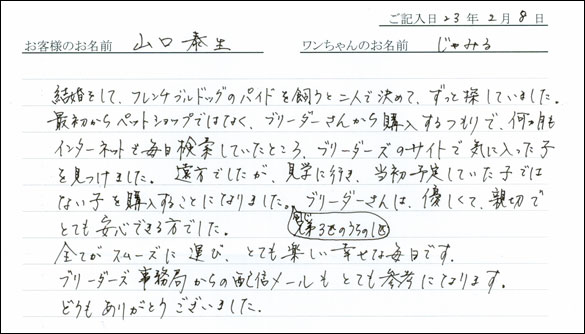 ご記入日 23年 2月 8日
お客様のお名前 山口 泰生 ワンちゃんのお名前 じゃみる
結婚をして、フレンチブルドッグのパイドを飼うと二人で決めて、ずっと探していました。
最初からペットショップではなく、ブリーダーさんから購入するつもりで、何ヶ月も
インターネットで毎日検索していたところ、ブリーダーズのサイトで気に入った子
を見つけました。遠方でしたが、見学に行き、当初予定していた子では
ない子を購入することになりました。ブリーダーさんは、優しくて、親切で
とても安心できる方でした。
兄弟3匹のうちの1匹
全てがスムーズに運び、とても楽しい幸せな毎日です。
ブリーダーズ事務局からの配信メールもとても参考になります。
どうもありがとうございました。